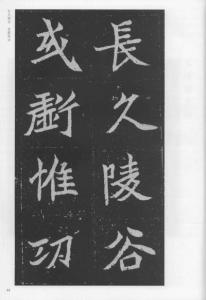 長久陵谷
或虧惟功